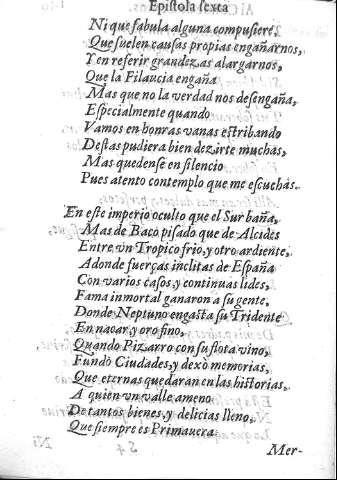 Epistola sexta
Ni que fabula alguna compusiere,
Que suelen causas propias engañarnos,
Y en referir grandezas alargarnos,
Que la Filaucia engaña
Mas que no la verdad nos desengaña,
Especialmente quando
Vamos en honras vanas estribando
Destas pudiera bien dezirte muchas,
Mas quedense en silencio
Pues atento contemplo que me escuchas.
En este imperio oculto que el Sur baña,
Mas de Baco pisado que de Alcides
Entre vn Tropico frio, y otro ardiente,
Adonde fuerças inclitas de España
Con varios casos, y continuas lides,
Fama inmortal ganaron a su gente,
Donde Neptuno engasta su Tridente
En nacar, y oro fino,
Quando Pizarro con su flota vino,
Fundò Ciudades, y dexò memorias,
Que eternas quedaran en las historias,
A quien vn valle ameno
De tantos bienes, y delicias lleno,
Que siempre es Primauera
Mer-